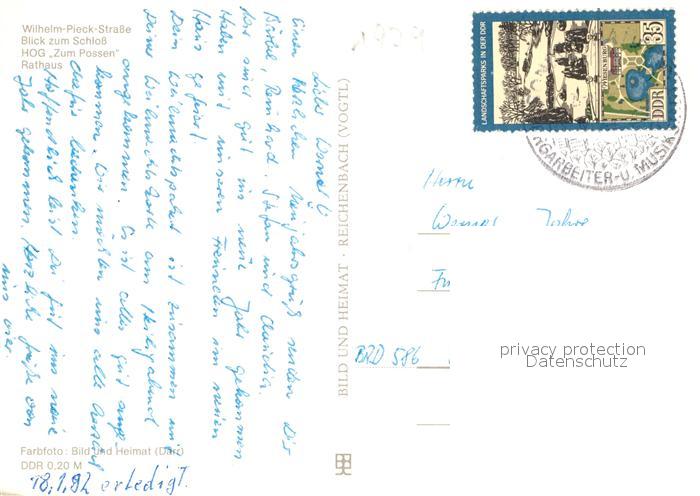 Wilhelm-Pieck-Straße
Blick zum Schloß
HOG „Zum Possen"
Rathaus
Einen herzlichen Neujahrsgruß senden Dir
Bärbel, Reinhard, Stefan und Claudia.
Wir sind gut ins neue Jahr gekommen
Haben mit unseren Freunden im neuen
Haus gefeiert
Dein Weihnachtspaket ist zusammen mit
Deiner Weihnachtskarte am Heiligabend
angekommen. Es ist alles gut ange-
kommen. Wir möchten uns alle herzlich
dafür bedanken
Hoffentlich bist Du gut ins neue
Jahr gekommen. Herzliche Grüße von
uns vier
Farbfoto: Bild und Heimat (Darr)
DDR 0,20 M
18,1,82 erledigt.
BILD UND HEIMAT · REICHENBACH (VOGTL)
LANDSCHAFTSPARKS IN DER DDR
35
DDR
RGARBEITER-U. MUSIK
Herrn
Werner
BRD 586
privacy protection
Datenschutz